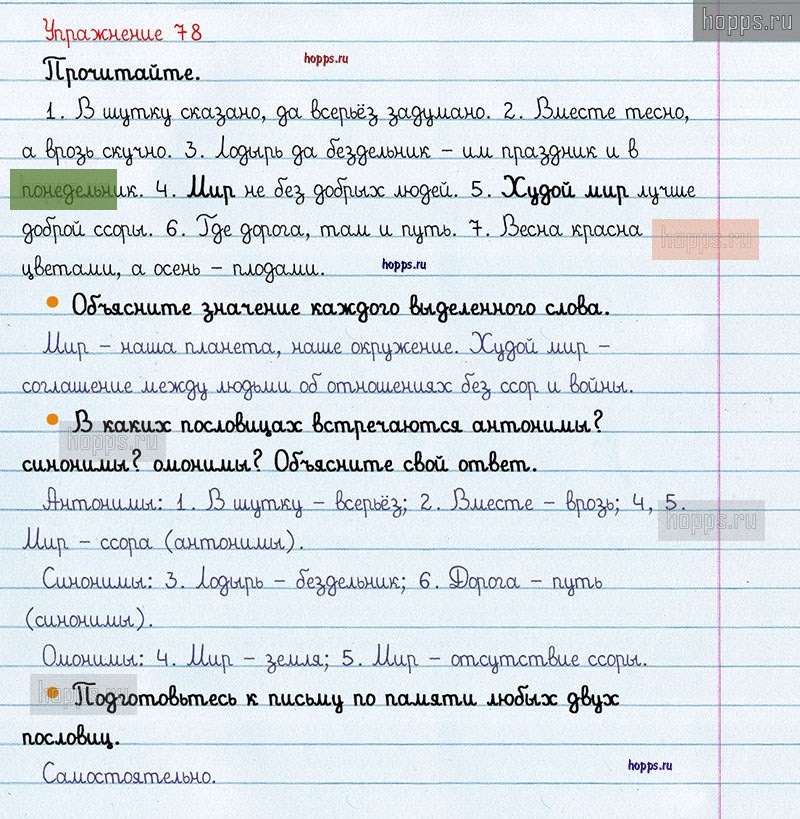 hopps.ru
Упражнение 78
hopps.ru
Прочитайте.
1. В шутку сказано, да всерьёз задумано. 2. Вместе тесно,
а врозь скучно. 3. Лодырь да бездельник – им праздник и в
понедельник. 4. Мир не без добрых людей. 5. Худой мир лучше
доброй ссоры. 6. Где дорога, там и путь. 7. Весна красна
hopps.ru
цветами, а осень – плодами.
hopps.ru
• Объясните значение каждого выделенного слова.
Мир – наша планета, наше окружение. Худой мир –
соглашение между людьми об отношениях без ссор и войны.
• В каких пословицах встречаются антонимы?
hopps.ru
синонимы? омонимы? Объясните свой ответ.
Антонимы: 1. В шутку – всерьёз; 2. Вместе – врозь; 4, 5.
hopps.ru
Мир – ссора (антонимы).
Синонимы: 3. Лодырь – бездельник; 6. Дорога – путь
(синонимы).
Омонимы: 4. Мир – земля; 5. Мир – отсутствие ссоры.
hopps.ru
• Подготовьтесь к письму по памяти любых двух
пословиц.
Самостоятельно.
hopps.ru